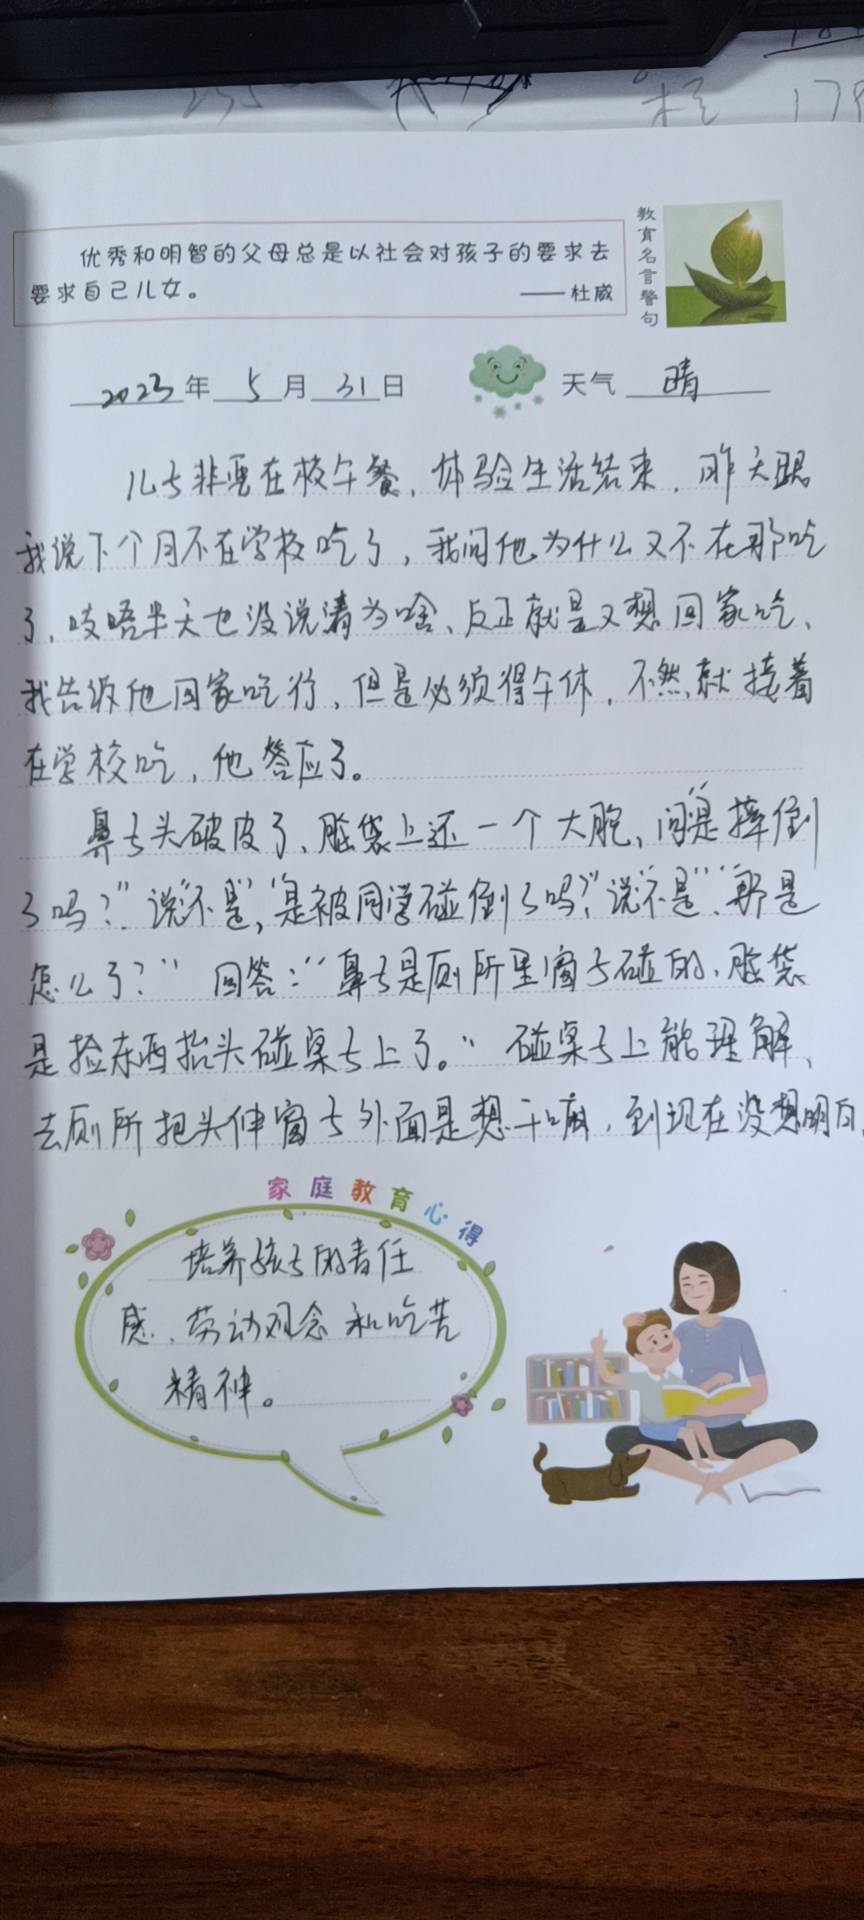 教育名言警句
优秀和明智的父母总是以社会对孩子的要求去
要求自己儿女。 ——杜威
2023年5月31日 天气 晴
儿子非要在校午餐，体验生活结束，昨天跟
我说下个月不在学校吃了，我问他为什么又不在那吃
了，吱唔半天也没说清为啥、反正就是又想回家吃、
我告诉他回家吃行，但是必须得午休，不然就接着
在学校吃，他答应了。
鼻子头破皮了、脑袋上还一个大胞，问“是摔倒
了吗？”说“不是”，“是被同学碰倒了吗？”说“不是”、“那是
怎么了？” 回答：“鼻子是厕所里窗子碰的、脑袋
是捡东西抬头碰桌子上了。” 碰桌子上能理解、
去厕所把头伸窗子外面是想干嘛，到现在没想明白.
家庭教育心得
培养孩子的责任
感、劳动观念和吃苦
精神。